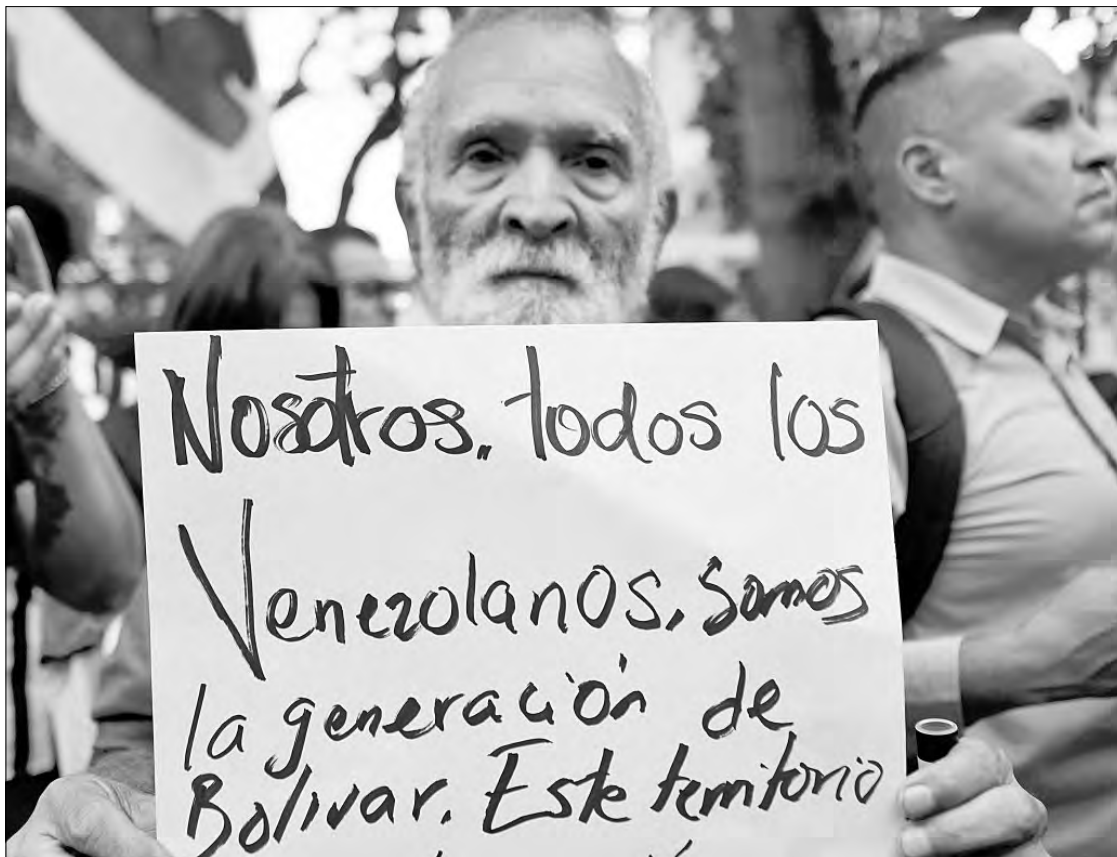 Nosotros.. todos los
Venezolanos. somos
la generación de
Bolivar. Este territorio